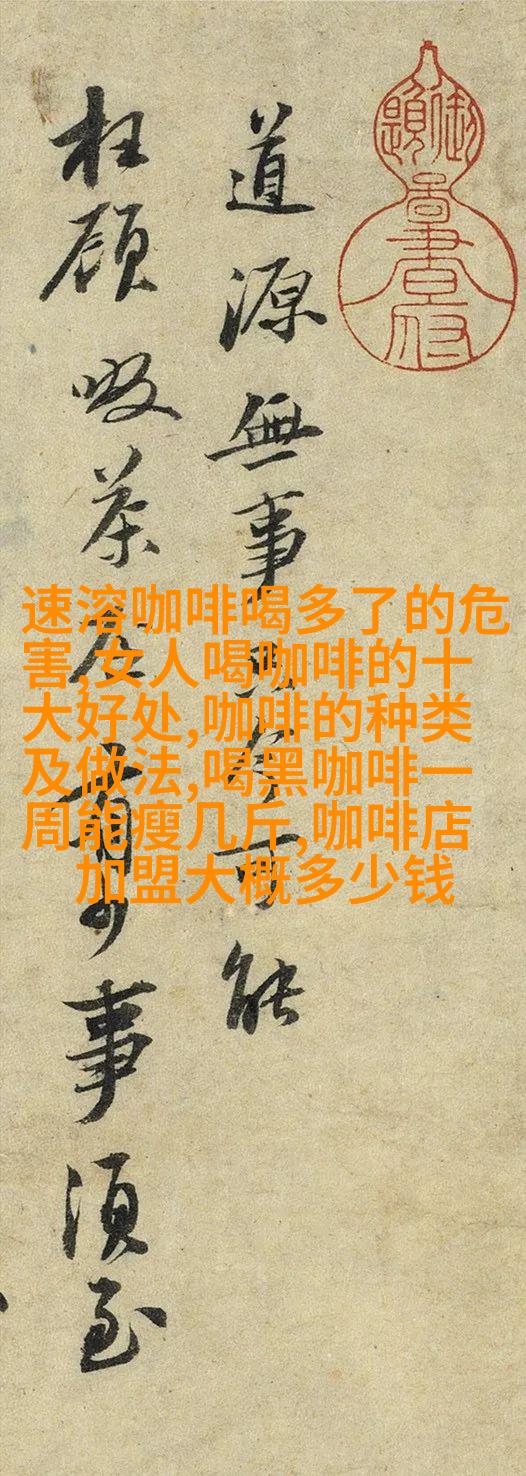 道源無事只今可能
枉顧啜茶否有少事須至
速溶咖啡喝多了的危
害,女人喝咖啡的十
大好处,咖啡的种类
及做法,喝黑咖啡一
周能瘦几斤,咖啡店
加盟大概多少钱